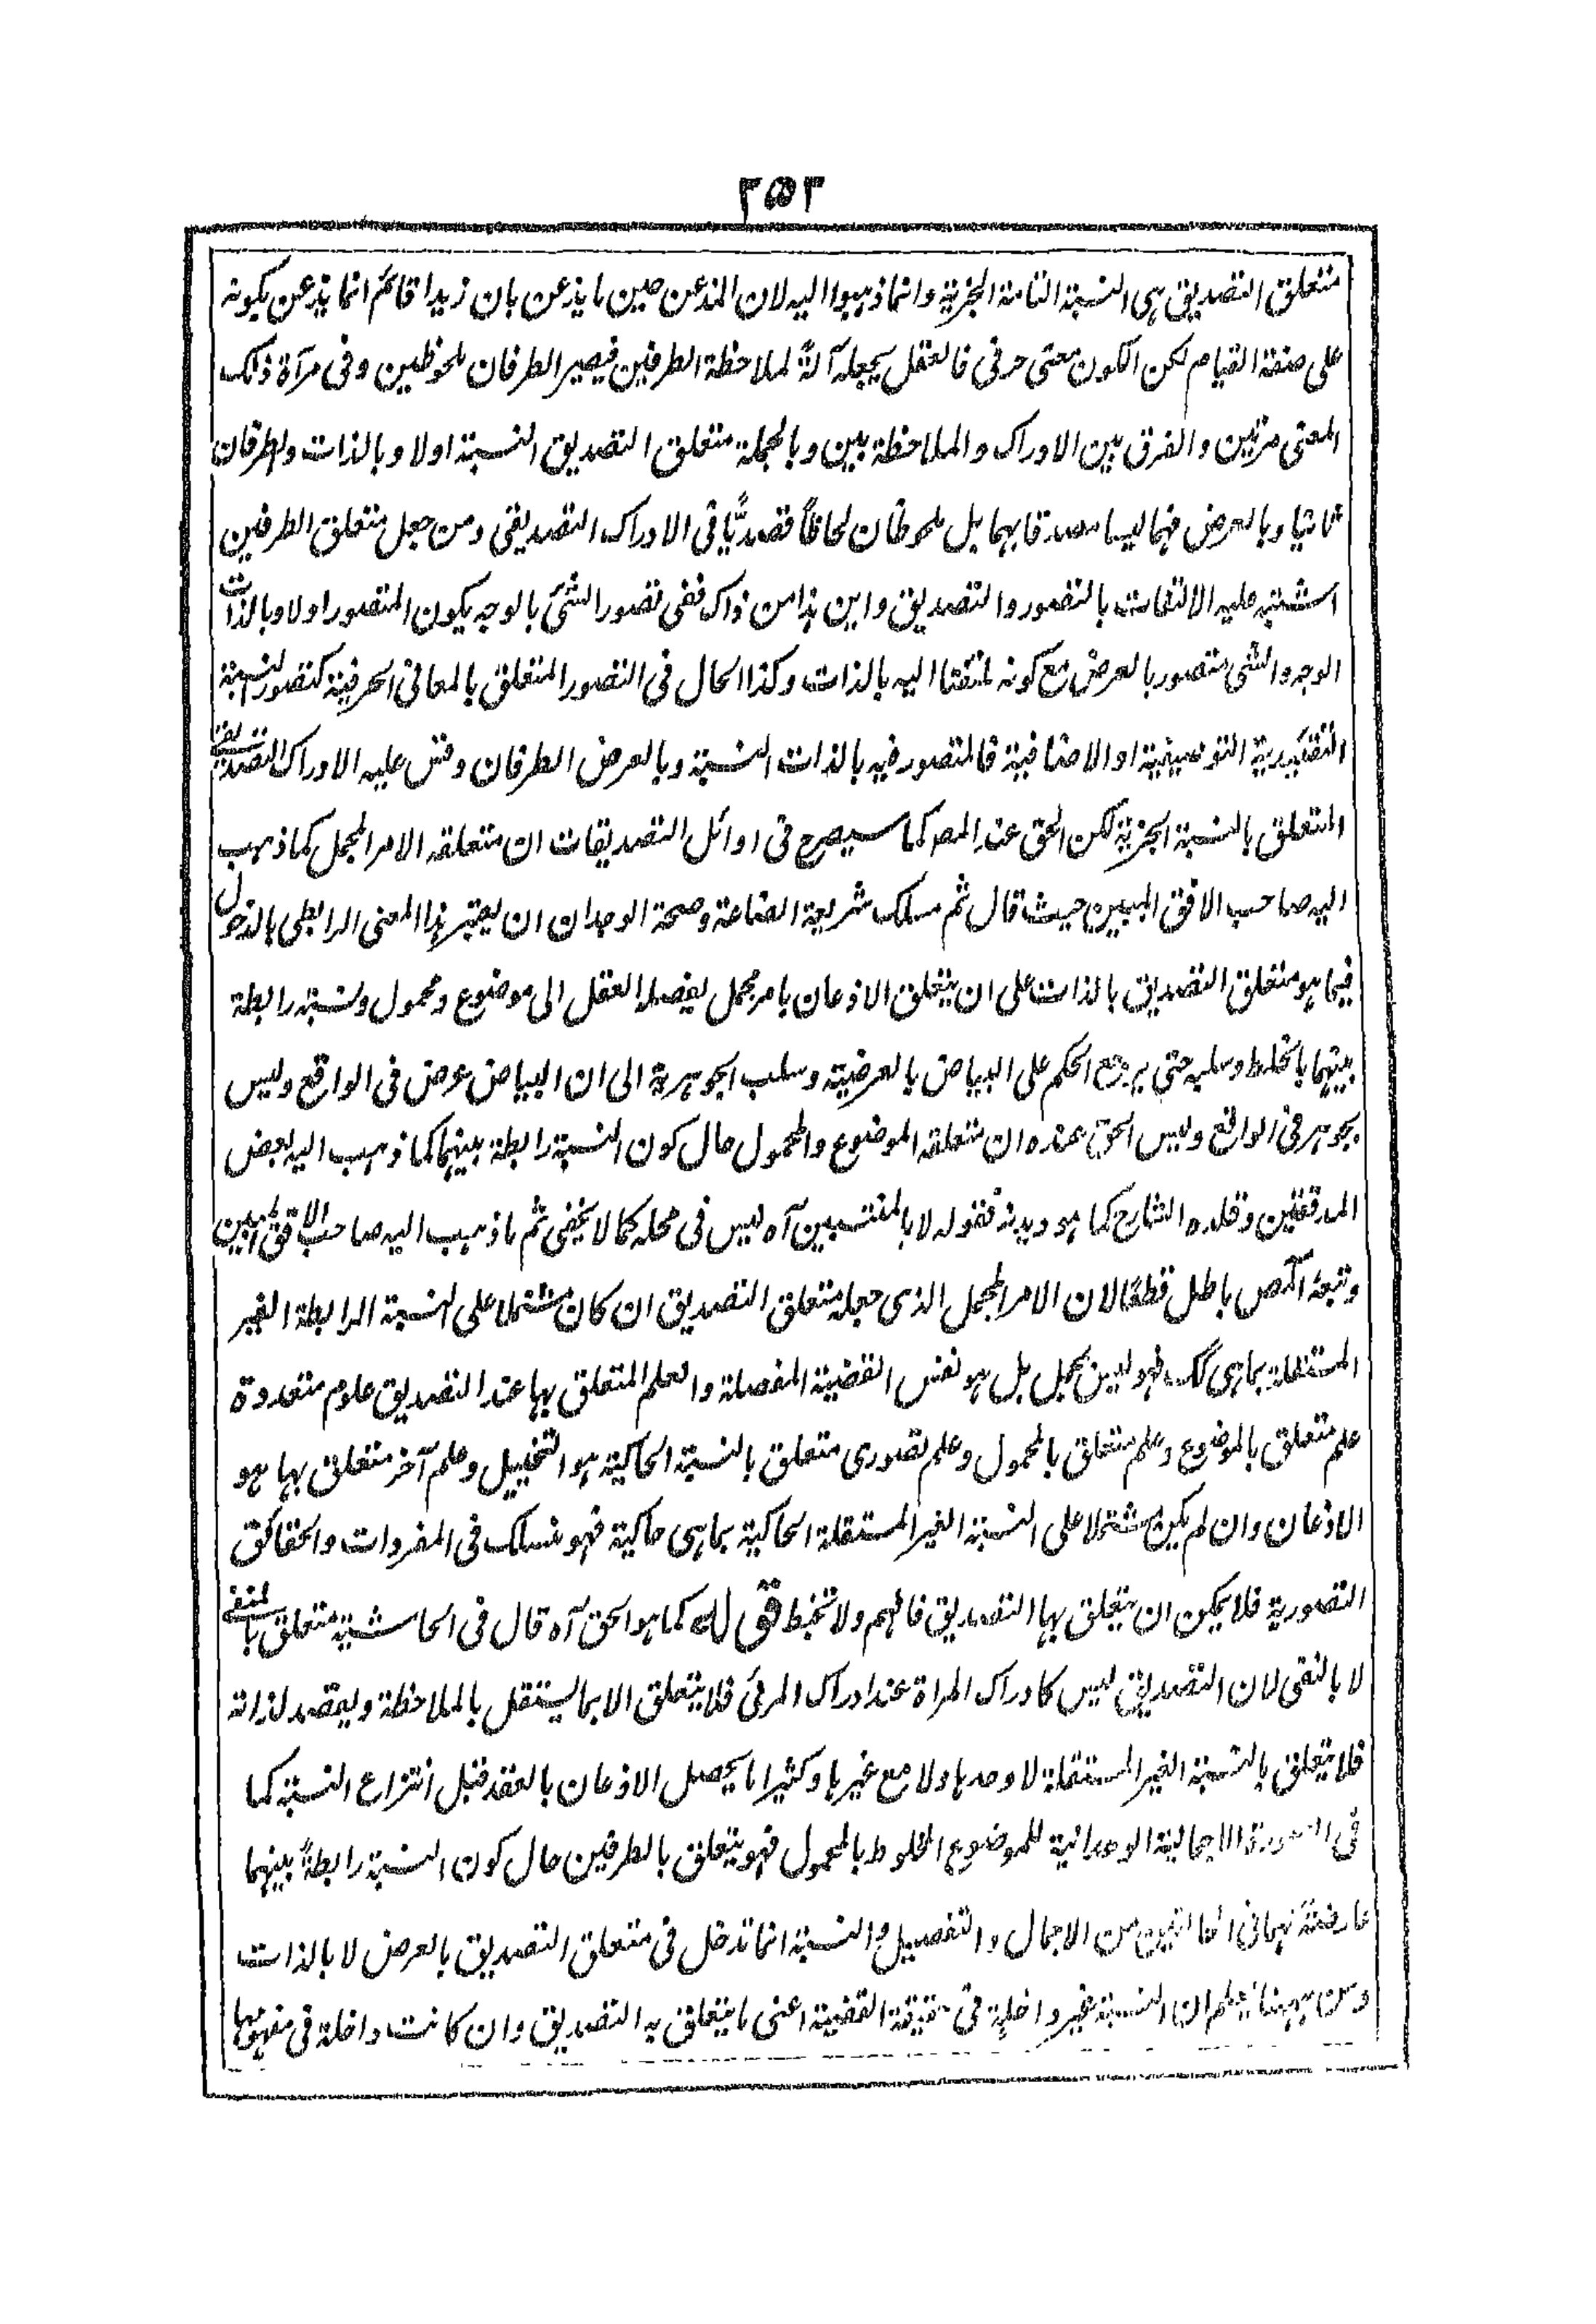 ٢٥٣
متعلق التصديق هى النسبة التامة الخبرية وانما ذهبوا اليه لان المذعن حين ما يذعن بان زيدا قائم انما يذعن بكونه
على صفة القيام لكن الكون معنى حرفى فالعقل يجعله آلة لملاحظة الطرفين فيصير الطرفان ملحوظين وفى مرآة ذلك
المعنى مرتبين والفرق بين الادراك والملاحظة بين وبالجملة متعلق التصديق النسبة اولا وبالذات والطرفان
ثانيا وبالعرض فهما ليسا مصدقا بهما بل ملحوظان لحاظاً قصديًّا فى الادراك التصديقى ومن جعل متعلق الطرفين
اشتبه عليه الالتفات بالتصور والتصديق واين هذا من ذاك ففى تصور الشئ بالوجه يكون المتصور اولا وبالذات
الوجه والشئ متصور بالعرض مع كونه ملتفتا اليه بالذات وكذا الحال فى التصور المتعلق بالمعانى الحرفية كتصور النسبة
التقييدية التوصيفية او الاضافية فالمتصور فيه بالذات النسبة وبالعرض الطرفان وقس عليه الادراك التصديقى
المتعلق بالنسبة الخبرية لكن الحق عند المصر كما سيصرح فى اوائل التصديقات ان متعلقه الامر المجمل كما ذهب
اليه صاحب الافق المبين حيث قال ثم مسلك شريعة الصناعة وصحة الوجدان ان يعتبر هذا المعنى الرابطى بالدخول
فيما هو متعلق التصديق بالذات على ان يتعلق الاذعان بامر مجمل يفصله العقل الى موضوع ومحمول ونسبة رابطة
بينهما بالخلط وسلبه حتى يرجع الحكم على البياض بالعرضية وسلب الجوهرية الى ان البياض عرض فى الواقع وليس
بجوهر فى الواقع وليس الحق عنده ان متعلقه الموضوع والمحمول حال كون النسبة رابطة بينهما كما ذهب اليه بعض
المدققين وقلده الشارح كما هو ديدنه فقوله لا بالمنتسبين آه ليس فى محله كما لا يخفى ثم ما ذهب اليه صاحب الافق المبين
وتبعه المص باطل قطعًا لان الامر المجمل الذى جعله متعلق التصديق ان كان مشتملا على النسبة الرابطة الغير
المستقلة بما هى كك فهو ليس بمجمل بل هو نفس القضية المفصلة والعلم المتعلق بها عند التصديق علوم متعددة
علم متعلق بالموضوع وعلم متعلق بالمحمول وعلم تصورى متعلق بالنسبة الحاكية هو التخييل وعلم آخر متعلق بها هو
الاذعان وان لم يكن مشتملا على النسبة الغير المستقلة الحاكية بما هى حاكية فهو منسلك فى المفردات والحقائق
التصورية فلا يمكن ان يتعلق بها التصديق فافهم ولا تخبط قوله كما هو الحق آه قال فى الحاشية متعلق بالمنفى
لا بالنفى لان التصديق ليس كادراك المراة عند ادراك المرئى فلا يتعلق الا بما يستقل بالملاحظة ويقصد لذاته
فلا يتعلق بالنسبة الغير المستقلة لا وحدها ولا مع غيرها وكثيرا ما يحصل الاذعان بالعقد قبل انتزاع النسبة كما
فى الصورة الاجمالية الوحدانية للموضوع المخلوط بالمحمول فهو يتعلق بالطرفين حال كون النسبة رابطةً بينهما
عارضةً لهما فى الحالتين من الاجمال والتفصيل والنسبة انما تدخل فى متعلق التصديق بالعرض لا بالذات
ومن ههنا يعلم ان النسبة غير داخلة فى حقيقة القضية اعنى ما يتعلق به التصديق وان كانت داخلة فى مفهومها